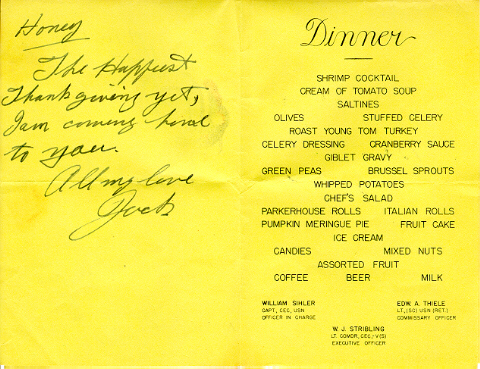 Honey
The Happiest
Thanksgiving yet,
I am coming home
to you.
All my love
Jack
Dinner
SHRIMP COCKTAIL
CREAM OF TOMATO SOUP
SALTINES
OLIVES STUFFED CELERY
ROAST YOUNG TOM TURKEY
CELERY DRESSING CRANBERRY SAUCE
GIBLET GRAVY
GREEN PEAS BRUSSEL SPROUTS
WHIPPED POTATOES
CHEF'S SALAD
PARKERHOUSE ROLLS ITALIAN ROLLS
PUMPKIN MERINGUE PIE FRUIT CAKE
ICE CREAM
CANDIES MIXED NUTS
ASSORTED FRUIT
COFFEE BEER MILK
WILLIAM SIHLER
CAPT, CEC, USN
OFFICER IN CHARGE
EDW. A. THIELE
LT, (SC) USN (RET.)
COMMISSARY OFFICER
W. J. STRIBLING
LT. COMDR, CEC, V(S)
EXECUTIVE OFFICER